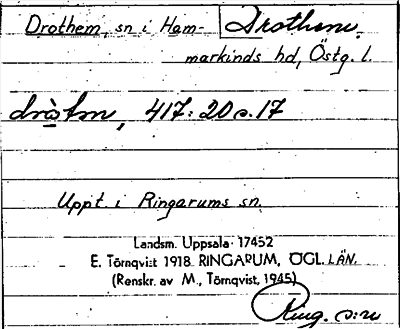 Drothem, sn i Ham- Drothem,
markinds hd, Östg. l.
417: 20 s. 17
Uppt. i Ringarums sn.
Landsm. Uppsala 17452
E. Törnqvist 1918. RINGARUM, ÖGL. LÄN.
(Renskr. av M., Törnqvist, 1945)
Ring. s:n